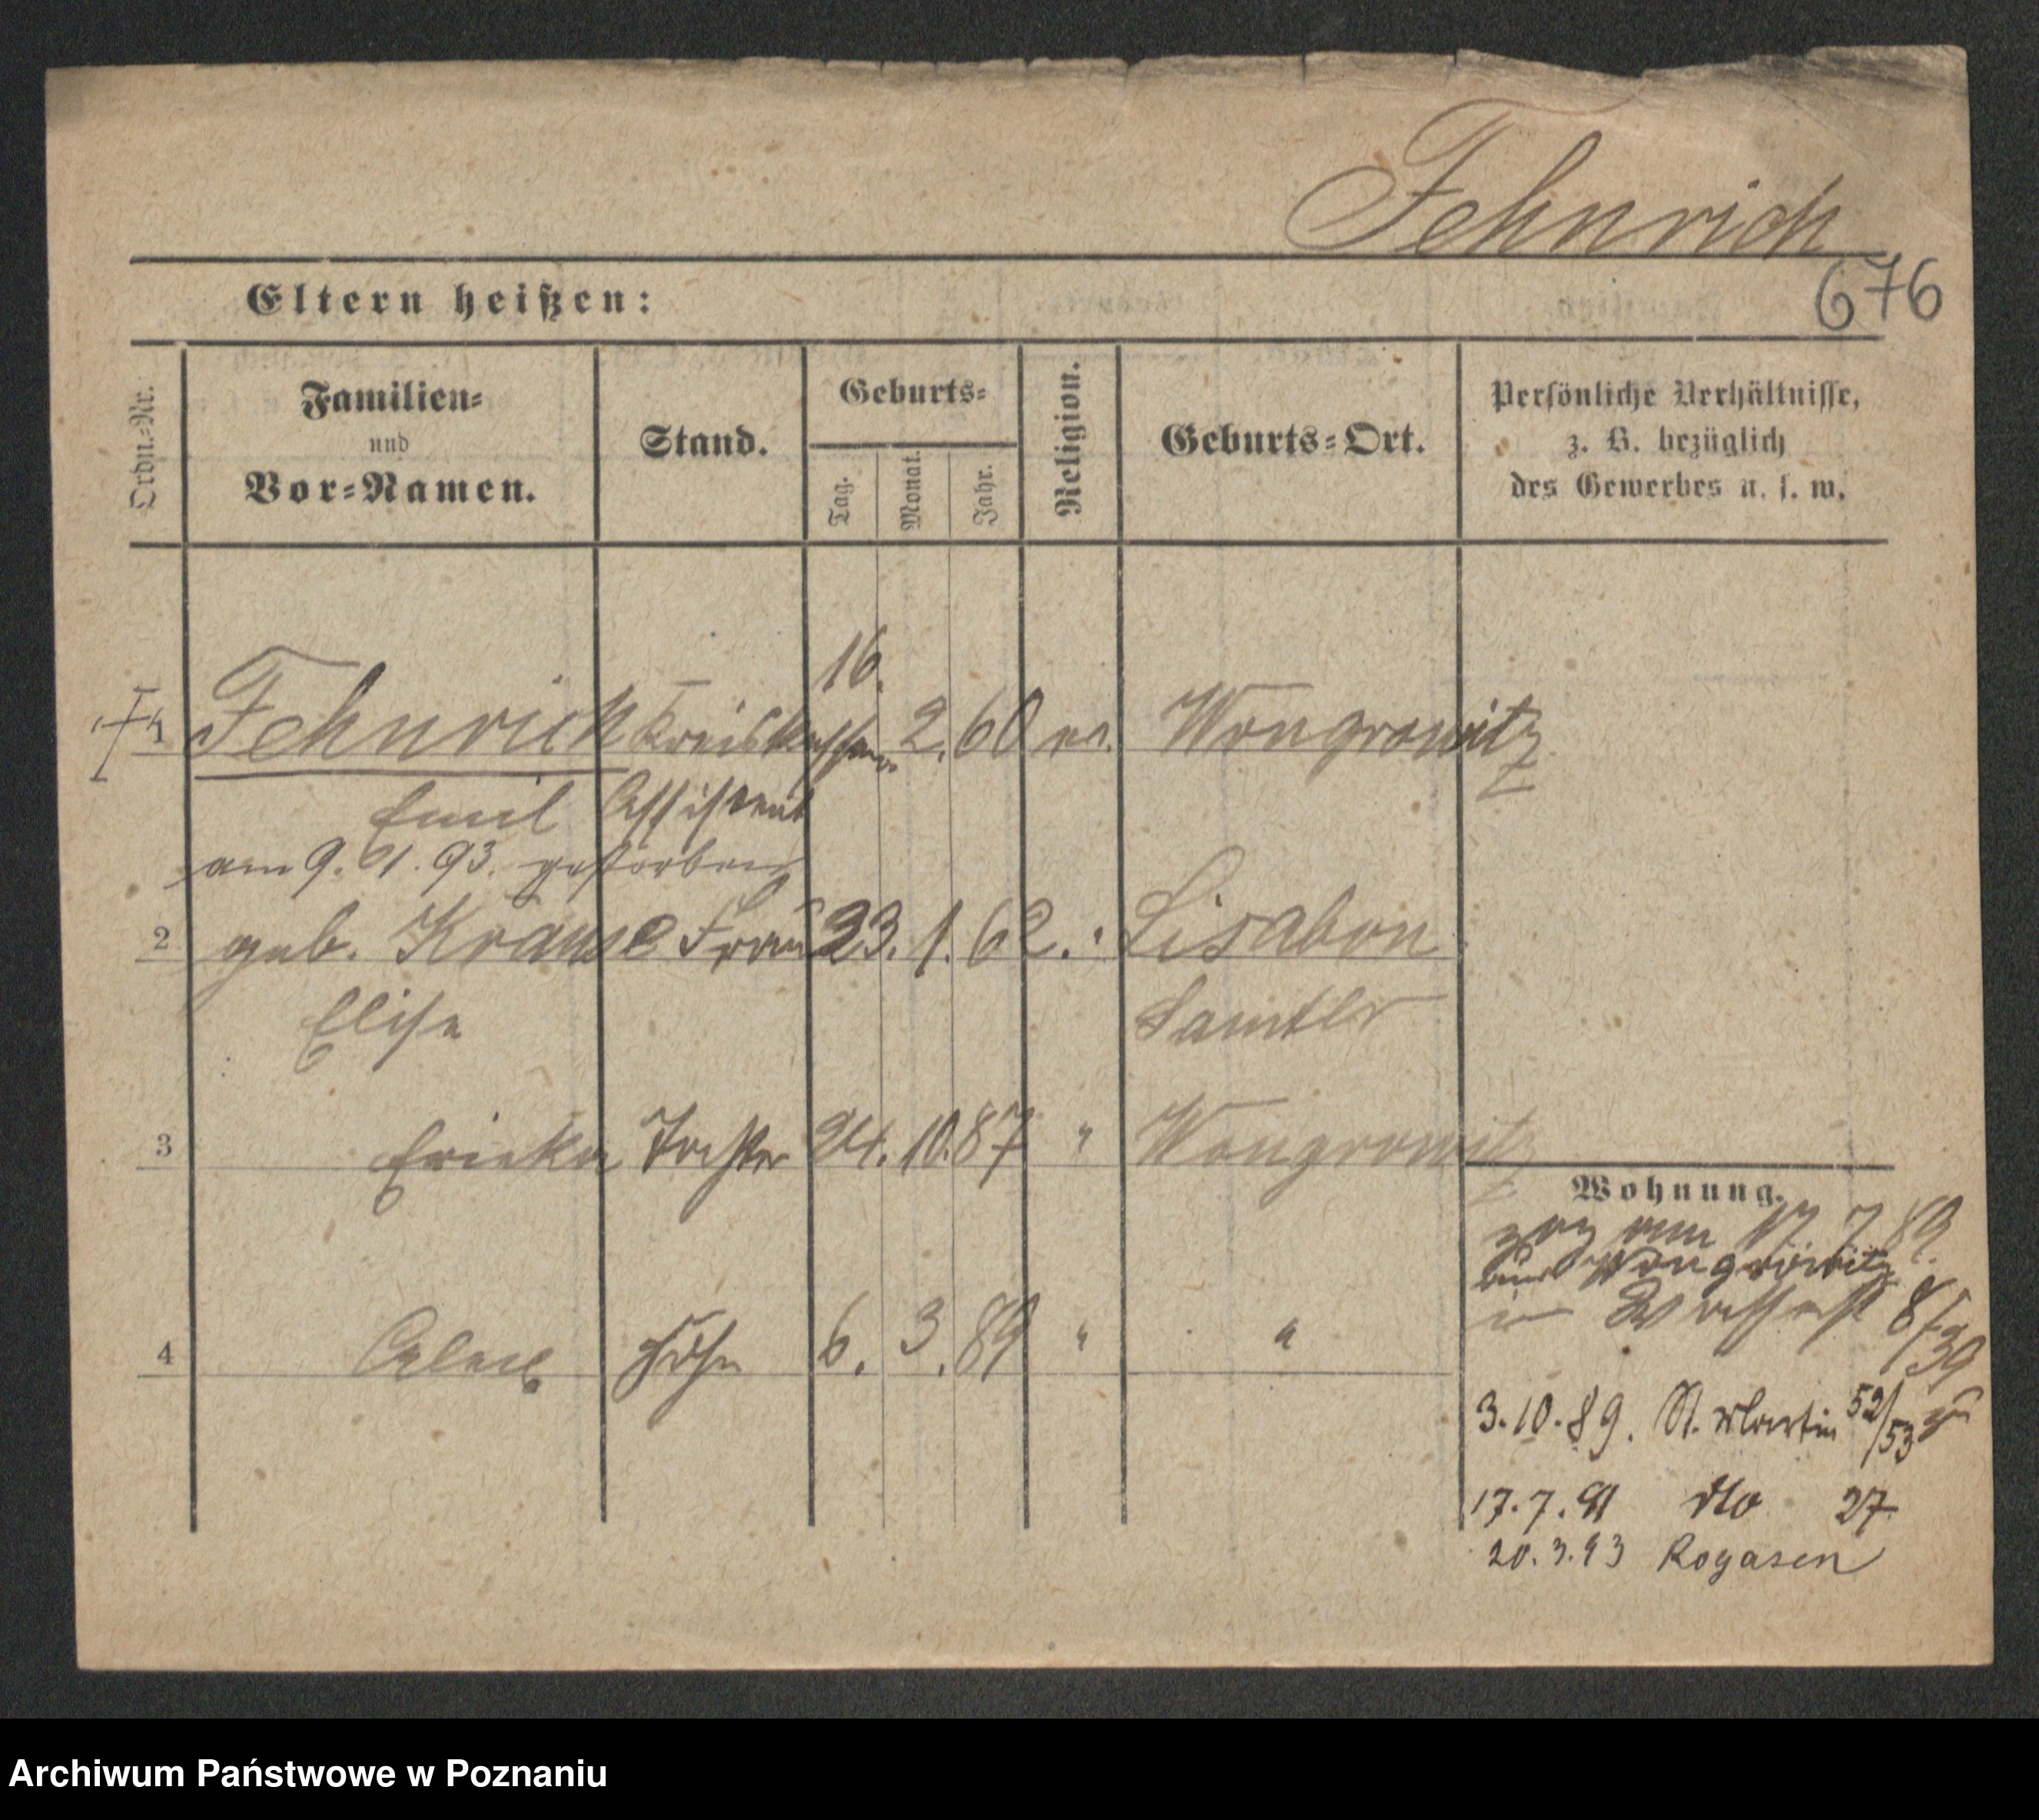 Fehnrich
676
Eltern heißen:
Ordn.-Nr.
Familien-
und
Vor-Namen.
Stand.
Geburts-
Tag.
Monat.
Jahr.
Religion.
Geburts-Ort.
Persönliche Verhältnisse,
z. B. bezüglich
des Gewerbes u. s. w.
1 Fehnrich Kreiskassen 16. 2. 60 ev. Wongrowitz
Emil Assistent
am 9. 1. 93. gestorben
2 geb. Krause Frau 23. 1. 62. " Lisabon
Elise Samter
3 Ericka Tochter 24. 10. 87 " Wongrowitz
4 Sohn 6. 3. 89 " "
Wohnung.
zog am 17 7 89.
aus Wongrowitz
8/39
zu
3.10.89. St. Martin 52/53
17.7.91 dto 27
20.3.93 Rogasen
Archiwum Państwowe w Poznaniu